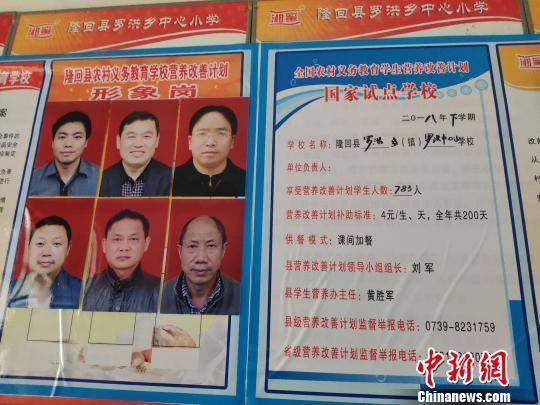 湘窖
隆回县罗洪乡中心小学
湘窖
隆回县罗洪乡中心小学
育学校
案
隆回县农村义务教育学校营养改善计划
形象岗
全国农村义务教育学生营养改善计划
国家试点学校
二0一八年下学期
学校名称：隆回县罗洪乡(镇)罗洪中心学校
单位负责人：
享受营养改善计划学生人数：783人
营养改善计划补助标准：4元/生、天，全年共200天
供餐模式：课间加餐
县营养改善计划领导小组组长：刘军
县学生营养办主任：黄胜军
县级营养改善计划监督举报电话：0739-8231759
省级营养改善计划监督举报电话：
中新网
Chinanews.com